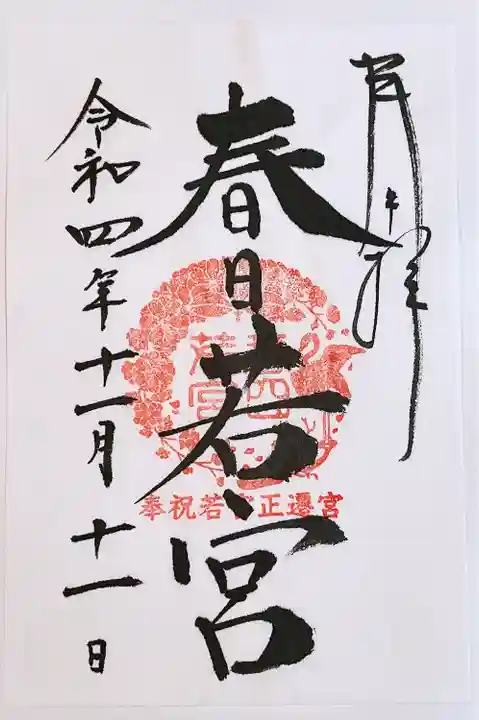 奉拝
春日若宮
奉祝若宮正遷宮
令和四年十一月十一日